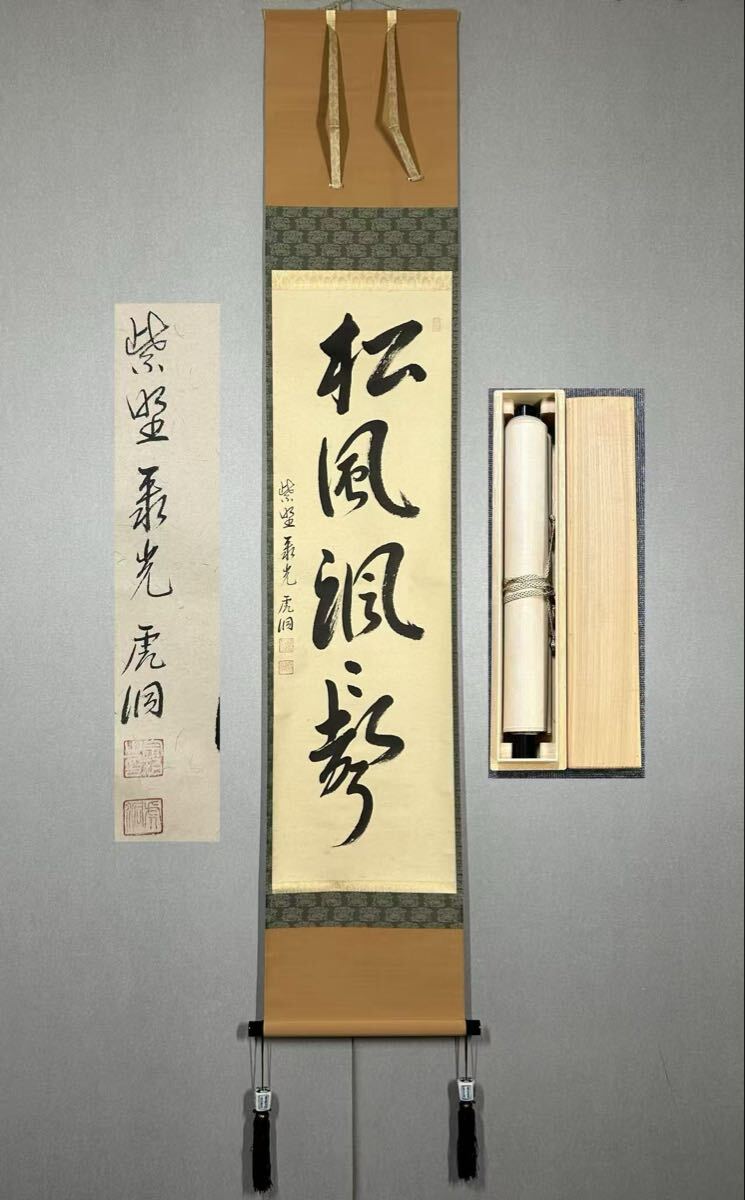 松風颯々聲
紫野 聚光 虎洞
紫野 聚光 虎洞